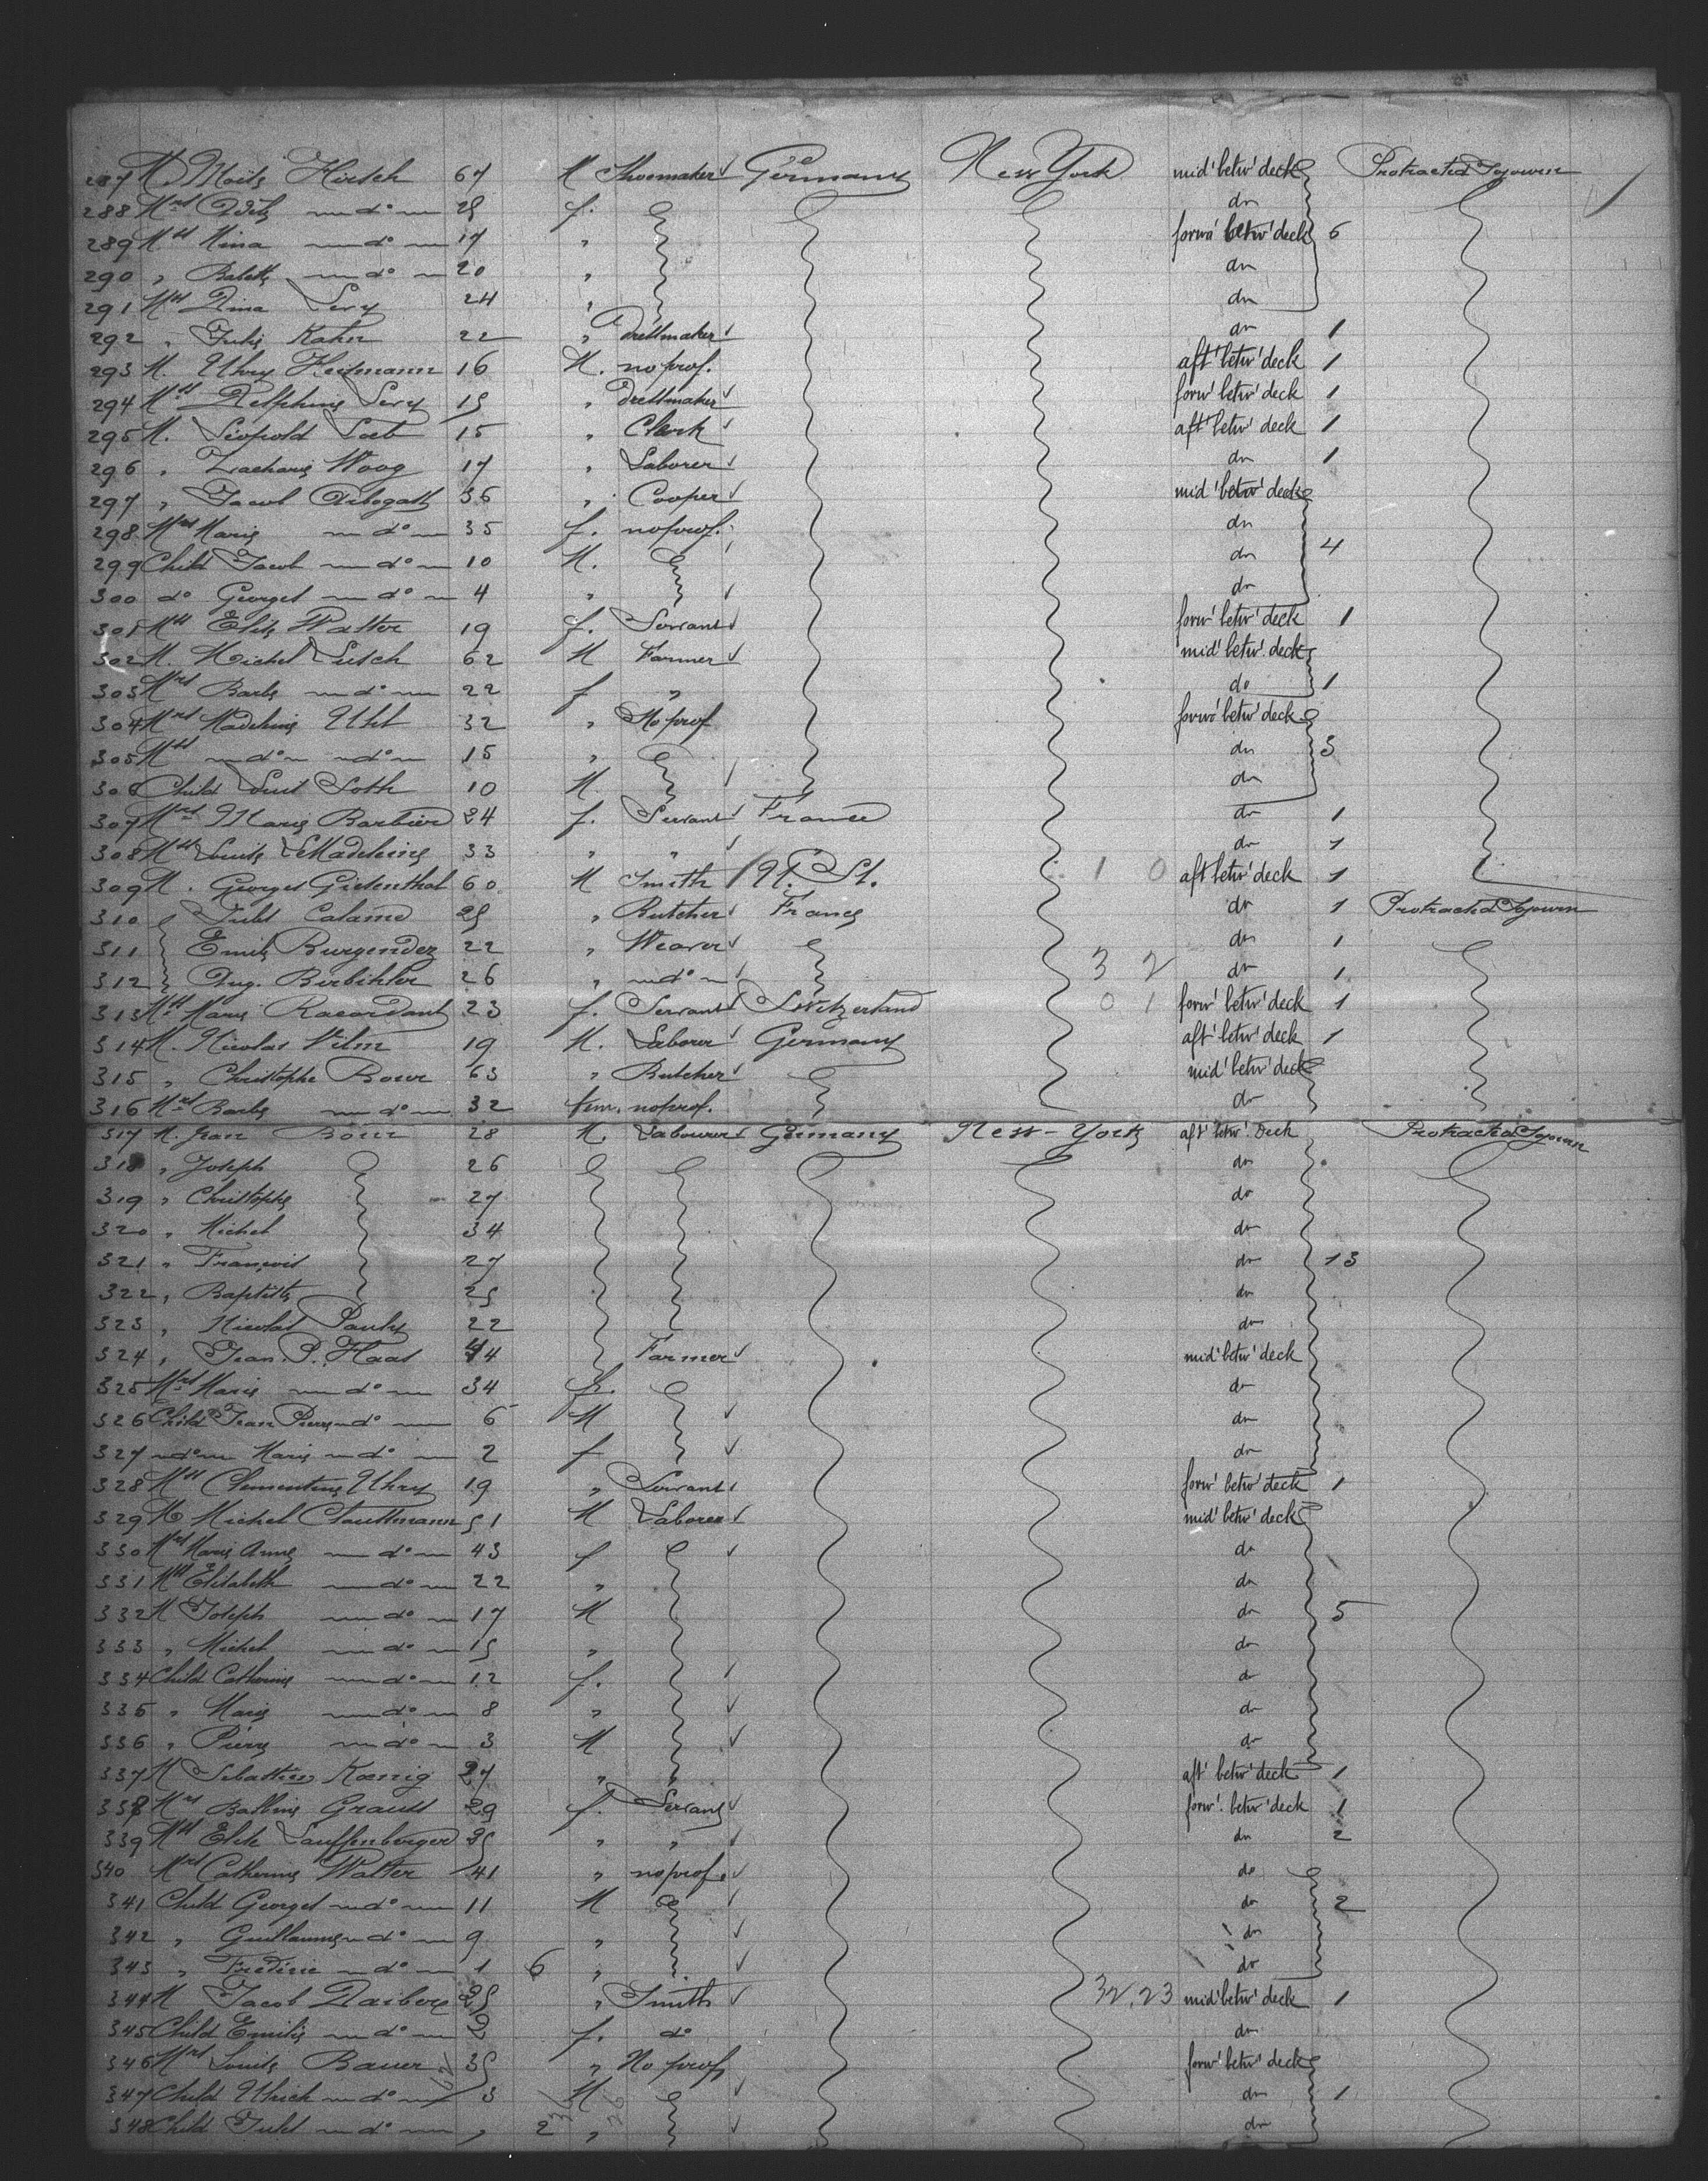 287 M. Moïse Hirsch 67 M Shoemaker Germany New York mid' betw' deck Protracted Sojourn
288 Mrs do 25 f. do
289 Mlle Nina do 17 " forw' betw' deck 5
290 " Babette do 20 " do
291 Mlle Dina Levy 24 " do
292 " Julie Kahn 22 " dressmaker do 1
293 M. Uhry Heitmann 16 M. no prof. aft' betw' deck 1
294 Mlle Delphine Levy 15 " dressmaker forw' betw' deck 1
295 M. Léopold Loeb 15 " Clerk aft' betw' deck 1
296 " Zacharie Woog 17 " Laborer do 1
297 " Jacob Arbogast 36 " Cooper mid' betw' deck
298 Mrs Marie do 35 f. no prof. do
299 Child Jacob do 10 M. do 4
300 do Georges do 4 " do
301 Mlle Elise Walter 19 f. Servant forw' betw' deck 1
302 M. Michel Lusch 62 M Farmer mid' betw' deck
303 Mrs Barbe do 22 f " do 1
304 Mrs Madeleine Uhl 32 " No prof forw' betw' deck
305 Mlle do do 15 " do 3
306 Child 10 M. do
307 Mrs Marie Barbier 24 f. Servant France do 1
308 Mlle Louise 33 " " do 1
309 M. Georges Gietenthal 60 M Smith U. St. 1 0 aft betw' deck 1
310 Jules Calame 25 " Butcher France do 1 Protracted Sojourn
311 Emile Burgender 22 " Weaver do 1
312 Aug. Birbihler 26 " do 3 2 do 1
313 Mlle Marie Racordant 23 f. Servant Switzerland 0 1 forw' betw' deck 1
314 M. Nicolas Vilm 19 M. Laborer Germany aft' betw' deck 1
315 " Christophe Bour 63 " Butcher mid' betw' deck
316 Mrs Barbe do 32 fem. no prof. do
317 M. Jean Bour 28 M. Labourer Germany New-York aft' betw' Deck Protracted Sojourn
318 " Joseph 26 do
319 " Christophe 27 do
320 " Michel 34 do
321 " François 27 do 13
322 " Baptiste 25 do
323 " Nicolas Pauly 22 do
324 " Jean P. Haas 44 Farmer mid' betw' deck
325 Mrs Marie do 34 f. do
326 Child Jean Pierre do 6 M do
327 do Marie do 2 f do
328 Mlle Clementine Uhry 19 " Servant forw' betw' deck 1
329 M Michel Clausmann 51 M Laborer mid' betw' deck
330 Mrs Marie Anne do 43 f do
331 Mlle Elisabeth do 22 " do
332 M Joseph do 17 M do 5
333 " Michel do 15 " do
334 Child Catherine do 12 f. do
335 " Marie do 8 " do
336 " Pierre do 3 M do
337 M Sebastien Kœnig 27 " aft' betw' deck 1
338 Mrs Balbine Grauss 29 f. Servant forw' betw' deck 1
339 Mlle Elise Lauffenberger 25 " " do 2
340 Mrs Catherine Walter 41 " no prof. do
341 Child Georges do 11 M do 2
342 " Guillaume do 9 " do
343 " Frédéric do 1 6 " do
344 M Jacob Daibere 25 " Smith 32.23 mid' betw' deck 1
345 Child Emilie do 2 f. do do
346 Mrs Louise Bauer 35 " No prof forw' betw' deck
347 Child Ulrich do 3 M do 1
348 Child Jules do " 2 " do